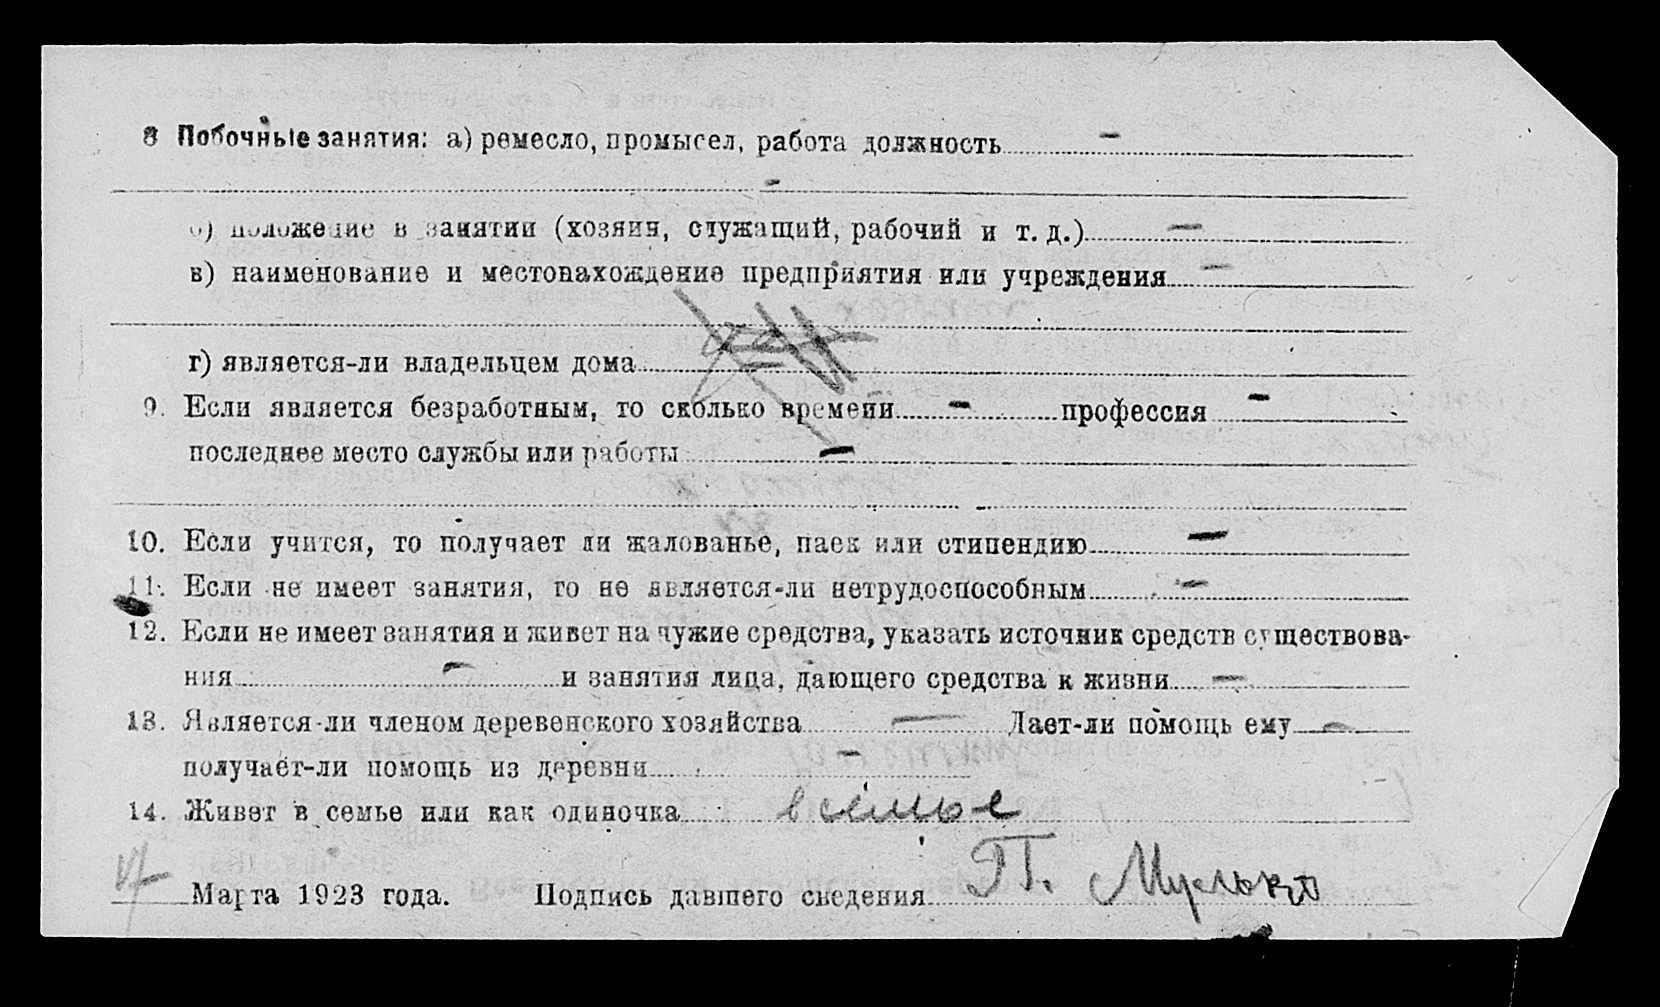 8 Побочные занятия: а) ремесло, промысел, работа должность –
–
б) положение в занятии (хозяин, служащий, рабочий и т. д.) –
в) наименование и местонахождение предприятия или учреждения –
г) является-ли владельцем дома
9. Если является безработным, то сколько времени – профессия –
последнее место службы или работы –
10. Если учится, то получает ли жалованье, паек или стипендию –
11. Если не имеет занятия, то не является-ли нетрудоспособным –
12. Если не имеет занятия и живет на чужие средства, указать источник средств существова-
ния – и занятия лица, дающего средства к жизни –
13. Является-ли членом деревенского хозяйства – Дает-ли помощь ему –
получает-ли помощь из деревни –
14. Живет в семье или как одиночка в семье
Марта 1923 года. Подпись давшего сведения П.